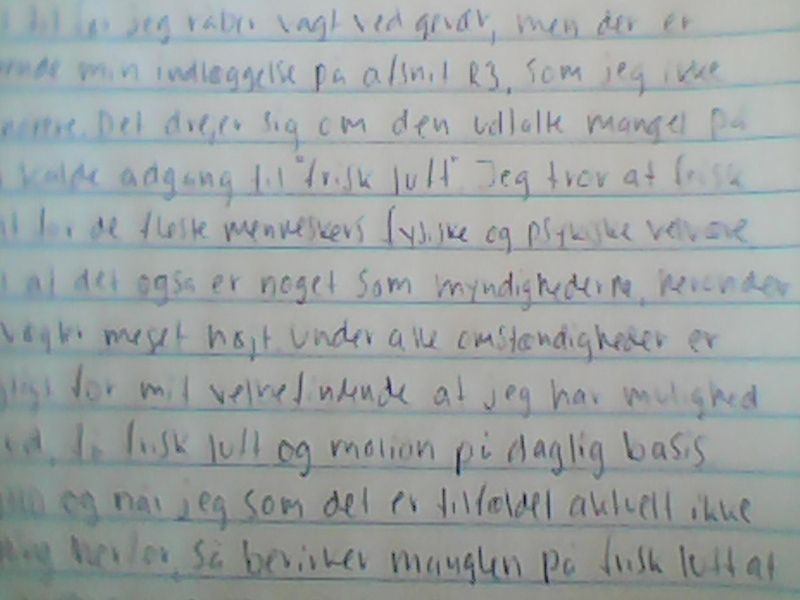 jeg råber vagt ved gevær, men der er
min indlæggelse på afsnit R3, som jeg ikke
Det drejer sig om den udtalte mangel på
kalde adgang til "frisk luft". Jeg tror at frisk
for de fleste menneskers fysiske og psykiske velvære
at det også er noget som myndighederne, herunder
vægter meget højt. Under alle omstændigheder er
for mit velbefindende at jeg har mulighed
frisk luft og motion på daglig basis
og når jeg som det er tilfældet aktuelt ikke
herfor, så bevirker manglen på frisk luft at